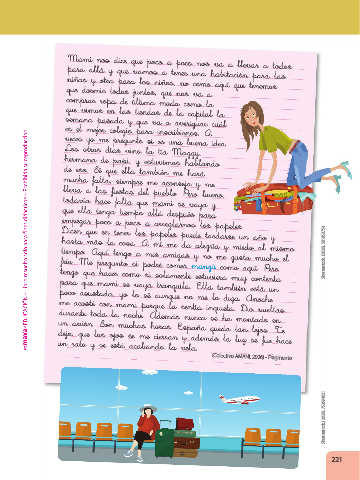 Mami nos dice que poco a poco nos va a llevar a todos
para allá y que vamos a tener una habitación para las
niñas y otra para los niños, no como aquí que tenemos
que dormir todos juntos, que nos va a
comprar ropa de última moda como la
que vemos en las tiendas de la capital la
semana pasada y que va a averiguar cuál
es el mejor colegio para inscribirnos. A
veces yo me pregunto si es una buena idea.
Los otros días vino la tía Maggy,
hermana de papi, y estuvimos hablando
de eso. Sé que ella también me hará
mucha falta, siempre me aconseja y me
lleva a las fiestas del pueblo. Pero bueno,
todavía hace falta que mami se vaya y
que ella tenga tiempo allá después para
empezar poco a poco a arreglarnos los papeles.
Dicen que en tener los papeles puede tardarse un año y
hasta más la cosa. A mí me da alegría y miedo al mismo
tiempo. Aquí tengo a mis amigas y no me gusta mucho el
frío. Me pregunto si podré comer mangú como aquí. Pero
tengo que hacer como si solamente estuviera muy contenta
para que mami se vaya tranquila. Ella también está un
poco asustada, yo lo sé aunque no me lo diga. Anoche
me acosté con mami porque la sentía inquieta. Dio vueltas
durante toda la noche. Además nunca se ha montado en
un avión. Son muchas horas. España queda tan lejos. Te
dejo, que los ojos se me cierran y además la luz se fue hace
un rato y se está acabando la vela.
(Colectivo AMANI, 2009) - Fragmento
221